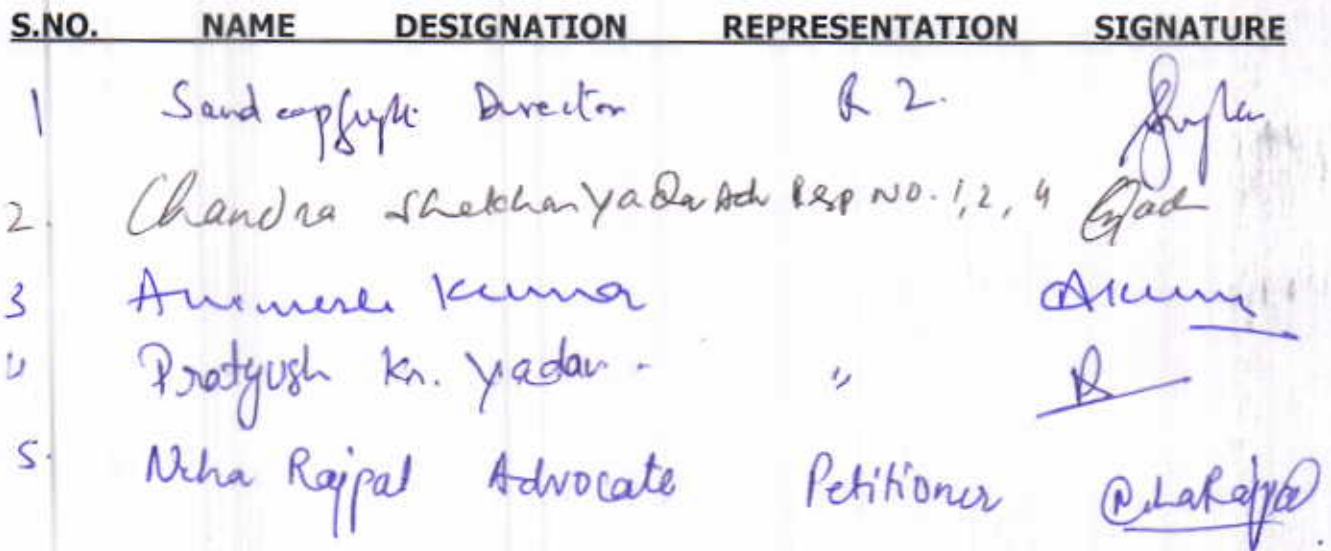 S.NO. NAME DESIGNATION REPRESENTATION SIGNATURE
1 Sandeep Gupta Director R 2.
2. Chandra Shekhar Yadav Adv Resp No. 1, 2, 4 Yadav
3 Animesh Kumar AKumar
" Pratyush Kr. Yadav - "
5. Neha Rajpal Advocate Petitioner NehaRajpal